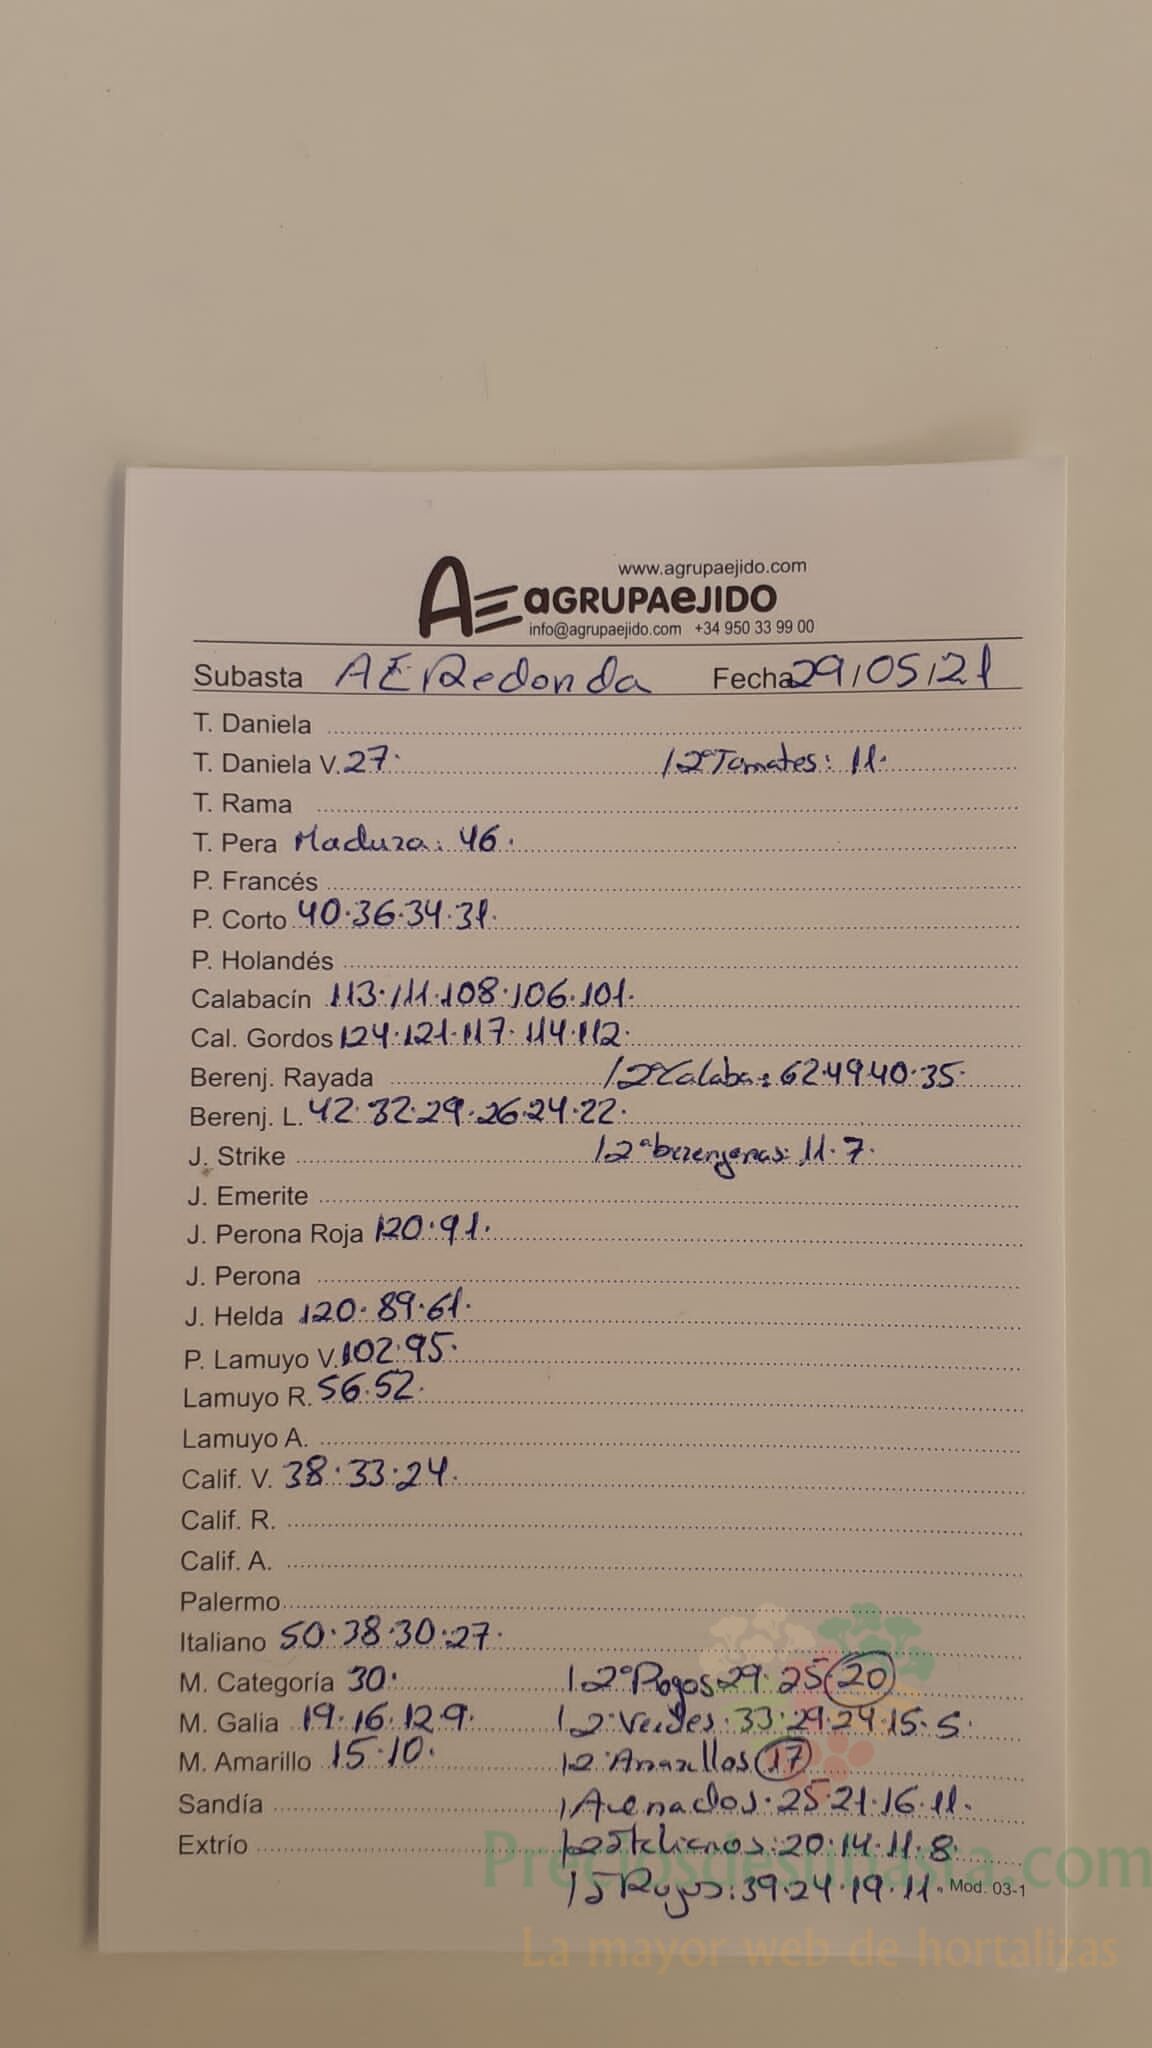 www.agrupaejido.com
AE aGRUPAeJIDO
info@agrupaejido.com +34 950 33 99 00
Subasta AE Redonda Fecha 29/05/21
T. Daniela
T. Daniela V. 27. / 2ªTomates: 11.
T. Rama
T. Pera Madura: 46.
P. Francés
P. Corto 40.36.34.31.
P. Holandés
Calabacín 113.111.108.106.101.
Cal. Gordos 124.121.117.114.112.
Berenj. Rayada / 2ªCalaba: 62.49.40.35.
Berenj. L. 42.32.29.26.24.22.
J. Strike / 2ªberenjenas: 11.7.
J. Emerite
J. Perona Roja 120.91.
J. Perona
J. Helda 120.89.61.
P. Lamuyo V. 102.95.
Lamuyo R. 56.52.
Lamuyo A.
Calif. V. 38.33.24.
Calif. R.
Calif. A.
Palermo
Italiano 50.38.30.27.
M. Categoría 30. / 2ªRojos 29.25.20
M. Galia 19.16.12.9. / 2ªVerdes.33.29.24.15.5.
M. Amarillo 15.10. / 2ªAmarillos 17
Sandía / Asenados.25.21.16.11.
Extrío / 2ªItalianos:20.14.11.8.
/ Rojos:39.24.19.11. Mod. 03-1
Preciosdesubasta.com
La mayor web de hortalizas